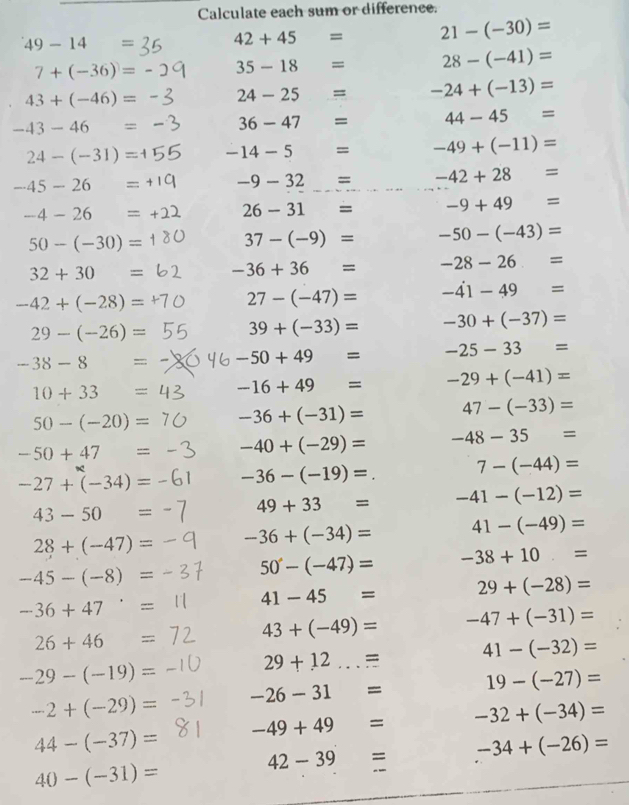 Calculate each sum or difference.
49 − 14 = 35
7 + (−36) = -29
43 + (−46) = -3
−43 − 46 = -3
24 − (−31) = +55
−45 − 26 = +19
−4 − 26 = +22
50 − (−30) = +80
32 + 30 = 62
−42 + (−28) = +70
29 − (−26) = 55
−38 − 8 = 46
10 + 33 = 43
50 − (−20) = 70
−50 + 47 = -3
−27 + (−34) = -61
43 − 50 = -7
28 + (−47) = -9
−45 − (−8) = -37
−36 + 47 = 11
26 + 46 = 72
−29 − (−19) = -10
−2 + (−29) = -31
44 − (−37) = 81
40 − (−31) =
42 + 45 =
35 − 18 =
24 − 25 =
36 − 47 =
−14 − 5 =
−9 − 32 =
26 − 31 =
37 − (−9) =
−36 + 36 =
27 − (−47) =
39 + (−33) =
−50 + 49 =
−16 + 49 =
−36 + (−31) =
−40 + (−29) =
−36 − (−19) =
49 + 33 =
−36 + (−34) =
50 − (−47) =
41 − 45 =
43 + (−49) =
29 + 12 =
−26 − 31 =
−49 + 49 =
42 − 39 =
21 − (−30) =
28 − (−41) =
−24 + (−13) =
44 − 45 =
−49 + (−11) =
−42 + 28 =
−9 + 49 =
−50 − (−43) =
−28 − 26 =
−41 − 49 =
−30 + (−37) =
−25 − 33 =
−29 + (−41) =
47 − (−33) =
−48 − 35 =
7 − (−44) =
−41 − (−12) =
41 − (−49) =
−38 + 10 =
29 + (−28) =
−47 + (−31) =
41 − (−32) =
19 − (−27) =
−32 + (−34) =
−34 + (−26) =